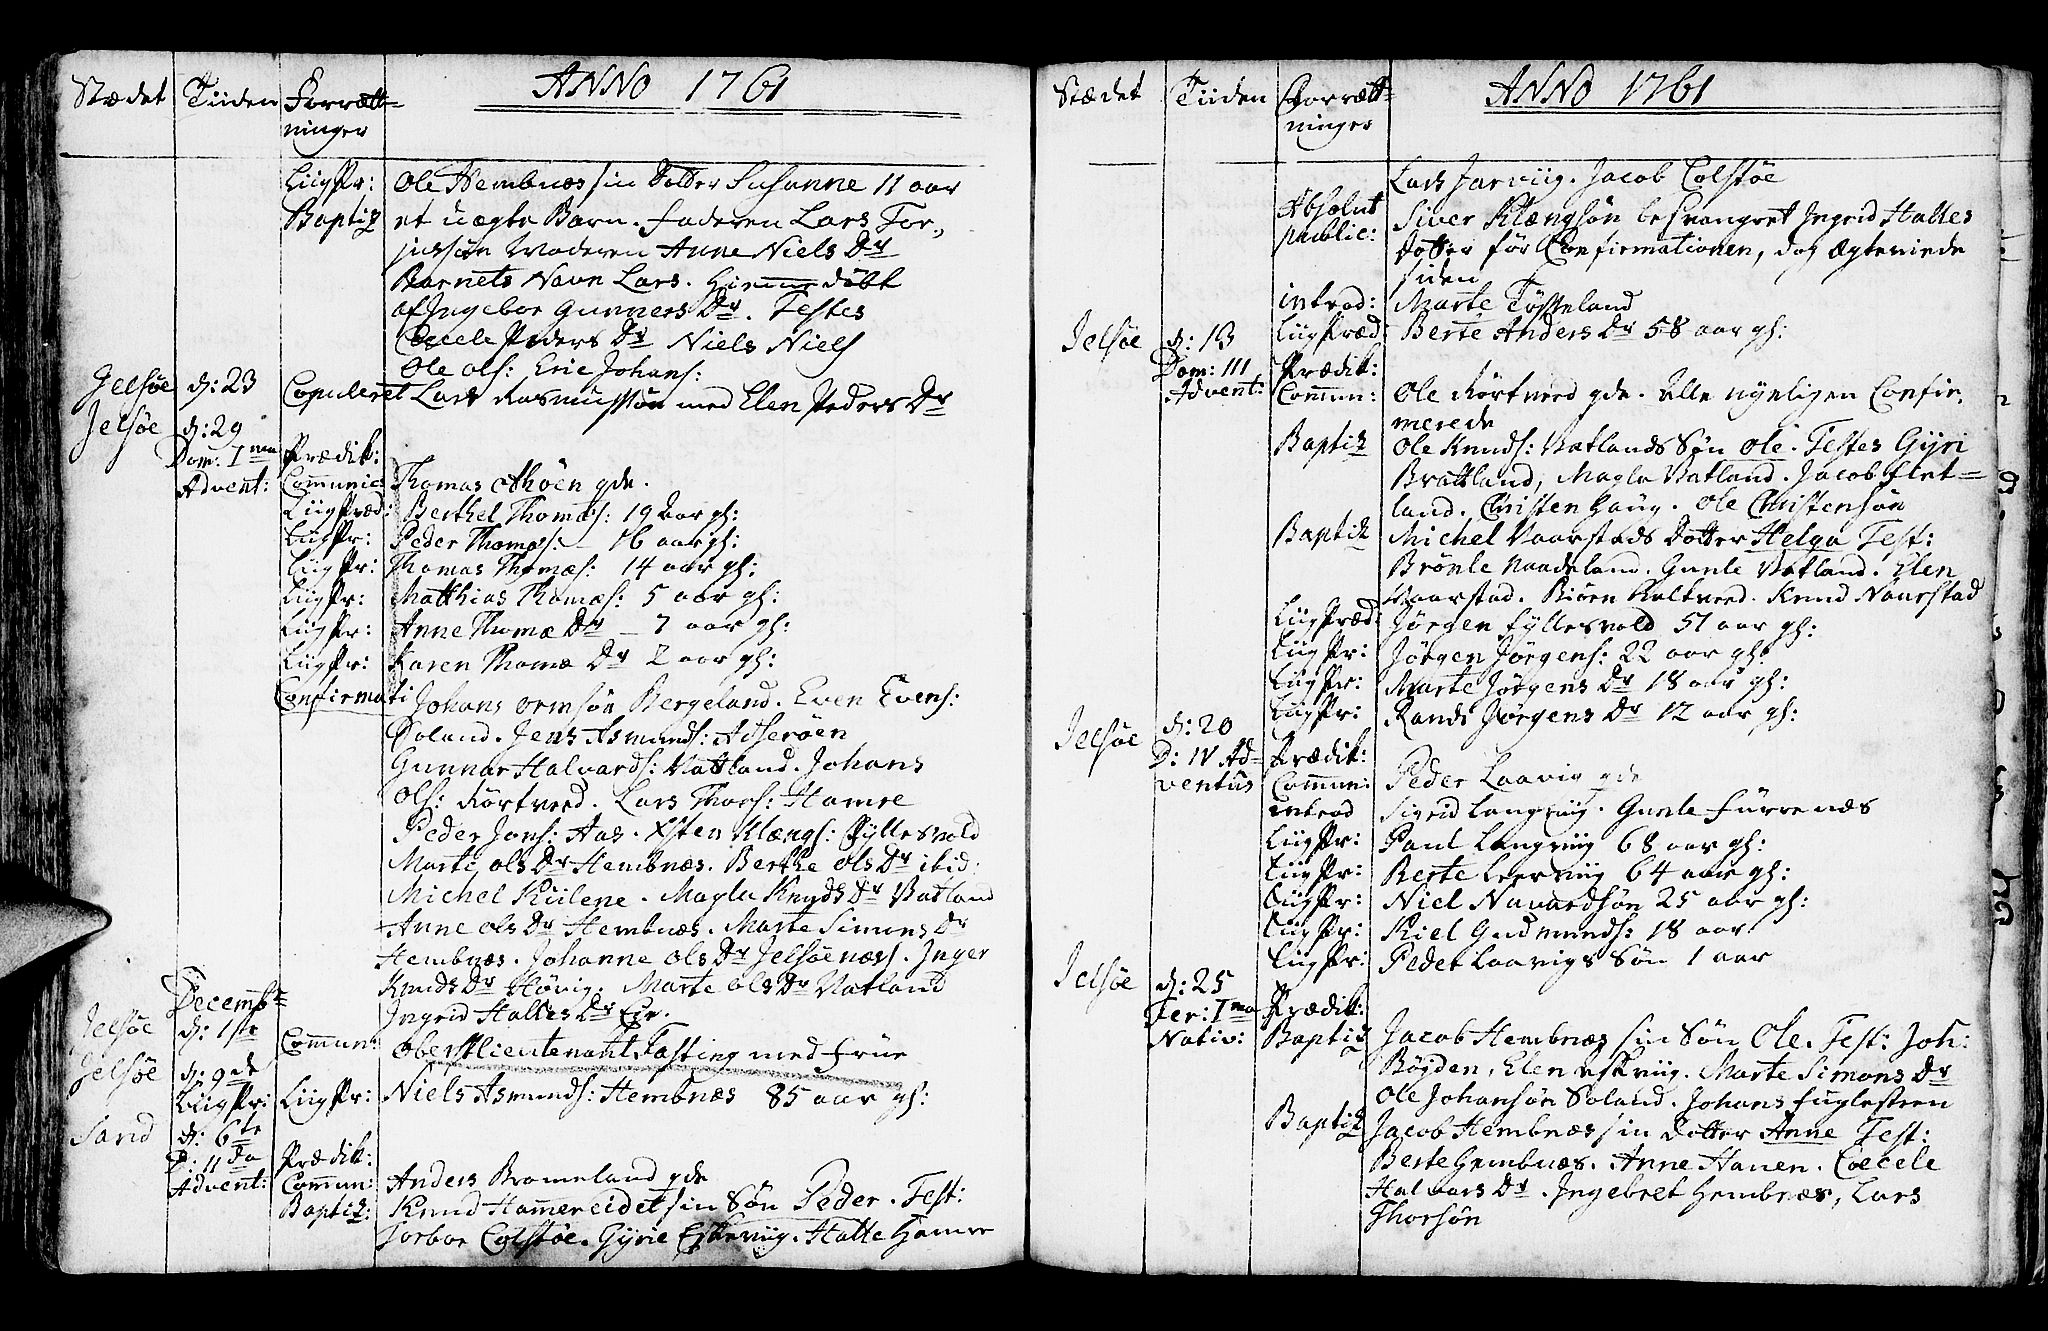 Stædet Tiiden Forrætt-
ninger
ANNO 1761
LiigPr: Ole Hembnæs sin Dotter Susanne 11 aar
Baptiz et uægte Barn. Faderen Lars Tor-
jussøn Moderen Anne Niels Dr
Barnets Navn Lars. Hiemme døbt
af Ingebor Gunners Dr. Testes
Cecele Peders Dr Niels Niels
Ole Ols: Eric Johans:
Jelsøe d: 23 Copuleret Lars Rasmussøn med Elen Peders Dr
Jelsøe d: 29
Dom. Ima Prædik:
Advent: Communic: Thomas gde.
LiigPræd: Berthel Thomæs: 19 aar gl:
LiigPr: Peder Thomæs: 16 aar gl:
LiigPr: Thomas Thomæs: 14 aar gl:
LiigPr: Matthias Thomæs: 5 aar gl:
LiigPr: Anne Thomæ Dr 7 aar gl:
LiigPr: Karen Thomæ Dr 2 aar gl:
Confirmati Johans Ormsøn Bergeland. Even Evens:
Soland. Jens Asmunds: Adserøen
Gunnar Halvards: Vattland. Johans
Ols: Kortveed. Lars Thors: Hamre
Peder Jons: Aas. Østen Klængs: Fyllesvold
Marte Ols Dr Hembnæs. Berthe Ols Dr ibid:
Michel Kiilene. Magla Knuds Dr Vatland
Anne Ols Dr Hembnæs. Marte Simons Dr
Hembnæs. Johanne Ols Dr Jelsøenæs. Inger
Knuds Dr Høvig. Marte Ols Dr Vatland
Ingrid Halles Dr Eie.
Decembr
Jelsøe d: 1ste Commun: Oberstlieutenant Fasting med Frue
Jelsøe d: 9de
LiigPr: LiigPr: Niels Asmunds: Hembnæs 85 aar gl:
Sand d: 6te
D: 11da Prædik:
Advent: Commun: Anders Brommeland gde
Baptiz: Knud Hammereidet sin Søn Peder. Test:
Torbor Colstøe. Gyrie Eskeviig. Halle Hamre
Stædet Tiiden Forrætt-
ninger
ANNO 1761
Lars Jarviig. Jacob Colstøe
Absolut Siver Klængsøn besvangret Ingrid Halles
public: Dotter før Confirmationen, dog ægteviede
siden
introd: Marte Tøsseland
Jelsøe d: 13 LiigPræd: Berte Anders Dr 58 aar gl:
Dom: III Prædik:
Advent: Commun: Ole Kortveed gde. Alle nyeligen Confir-
merede
Baptiz Ole Knuds: Vatlands Søn Ole. Testes Gyri
Brattland, Magla Vatland. Jacob Flot-
land. Christen Haug. Ole Christensøn
Baptiz Michel Vaarstads Dotter Helga Test:
Brønle Naadeland. Gunle Vatland. Elen
Vaarstad. Biøren Kaltveed. Knud Vaarstad
LiigPræd: Jørgen Fyllesvold 51 aar gl:
LiigPr: Jørgen Jørgens: 22 aar gl:
LiigPr: Marte Jørgens Dr 18 aar gl:
LiigPr: Randi Jørgens Dr 12 aar gl:
Jelsøe d: 20
D: IV Ad- Prædik:
ventus Commun: Peder Laavig gde
introd Sigrid Langviig. Gunle Furrenæs
LiigPr: Paul Langviig 68 aar gl:
LiigPr: Berte Leerviig 64 aar gl:
LiigPr: Niel Navardsøn 25 aar gl:
LiigPr: Kiel Gudmunds: 18 aar
LiigPr: Peder Laavigs Søn 1 aar
Jelsøe d: 25
Fer: Ima Prædik:
Nativ: Baptiz Jacob Hembnæs sin Søn Ole. Test: Joh:
Bøyden, Elen Eskviig. Marte Simons Dr
Ole Johansøn Soland. Johans Fuglesteen
Baptiz Jacob Hembnæs sin Dotter Anne Test:
Berte Hembnæs. Anne Hauen. Coecele
Halvars Dr. Ingebret Hembnæs, Lars
Thorsøn